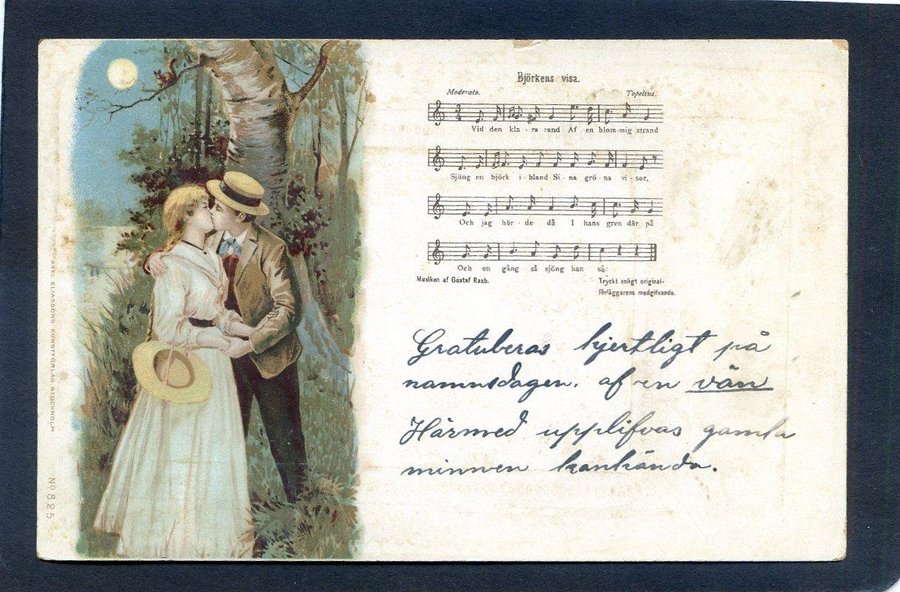 Björkens visa.
Moderato. Topelius.
Vid den kla-ra rand Af en blom-mig strand
Sjöng en björk i-bland Si-na grö-na vi-sor,
Och jag hör-de då I hans gren där på
Och en gång så sjöng han så:
Musiken af Gustaf Raab. Tryckt enligt original-
förläggarens medgifvande.
Gratuleras hjertligt på
namnsdagen. af en vän
Härmed upplifvas gamla
minnen kankända.
AXEL ELIASSONS KONSTFÖRLAG STOCKHOLM
No 895